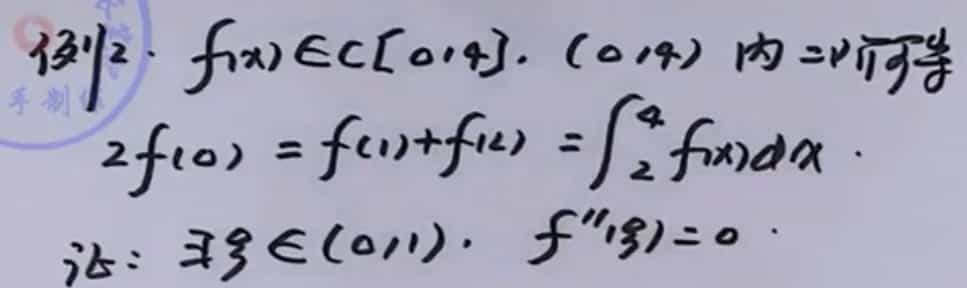 例2. f(x)∈C[0,4]. (0,4) 内二阶可导
2f(0) = f(1)+f(2) = ∫₂⁴ f(x)dx.
证: ∃ξ∈(0,1). f''(ξ)=0.